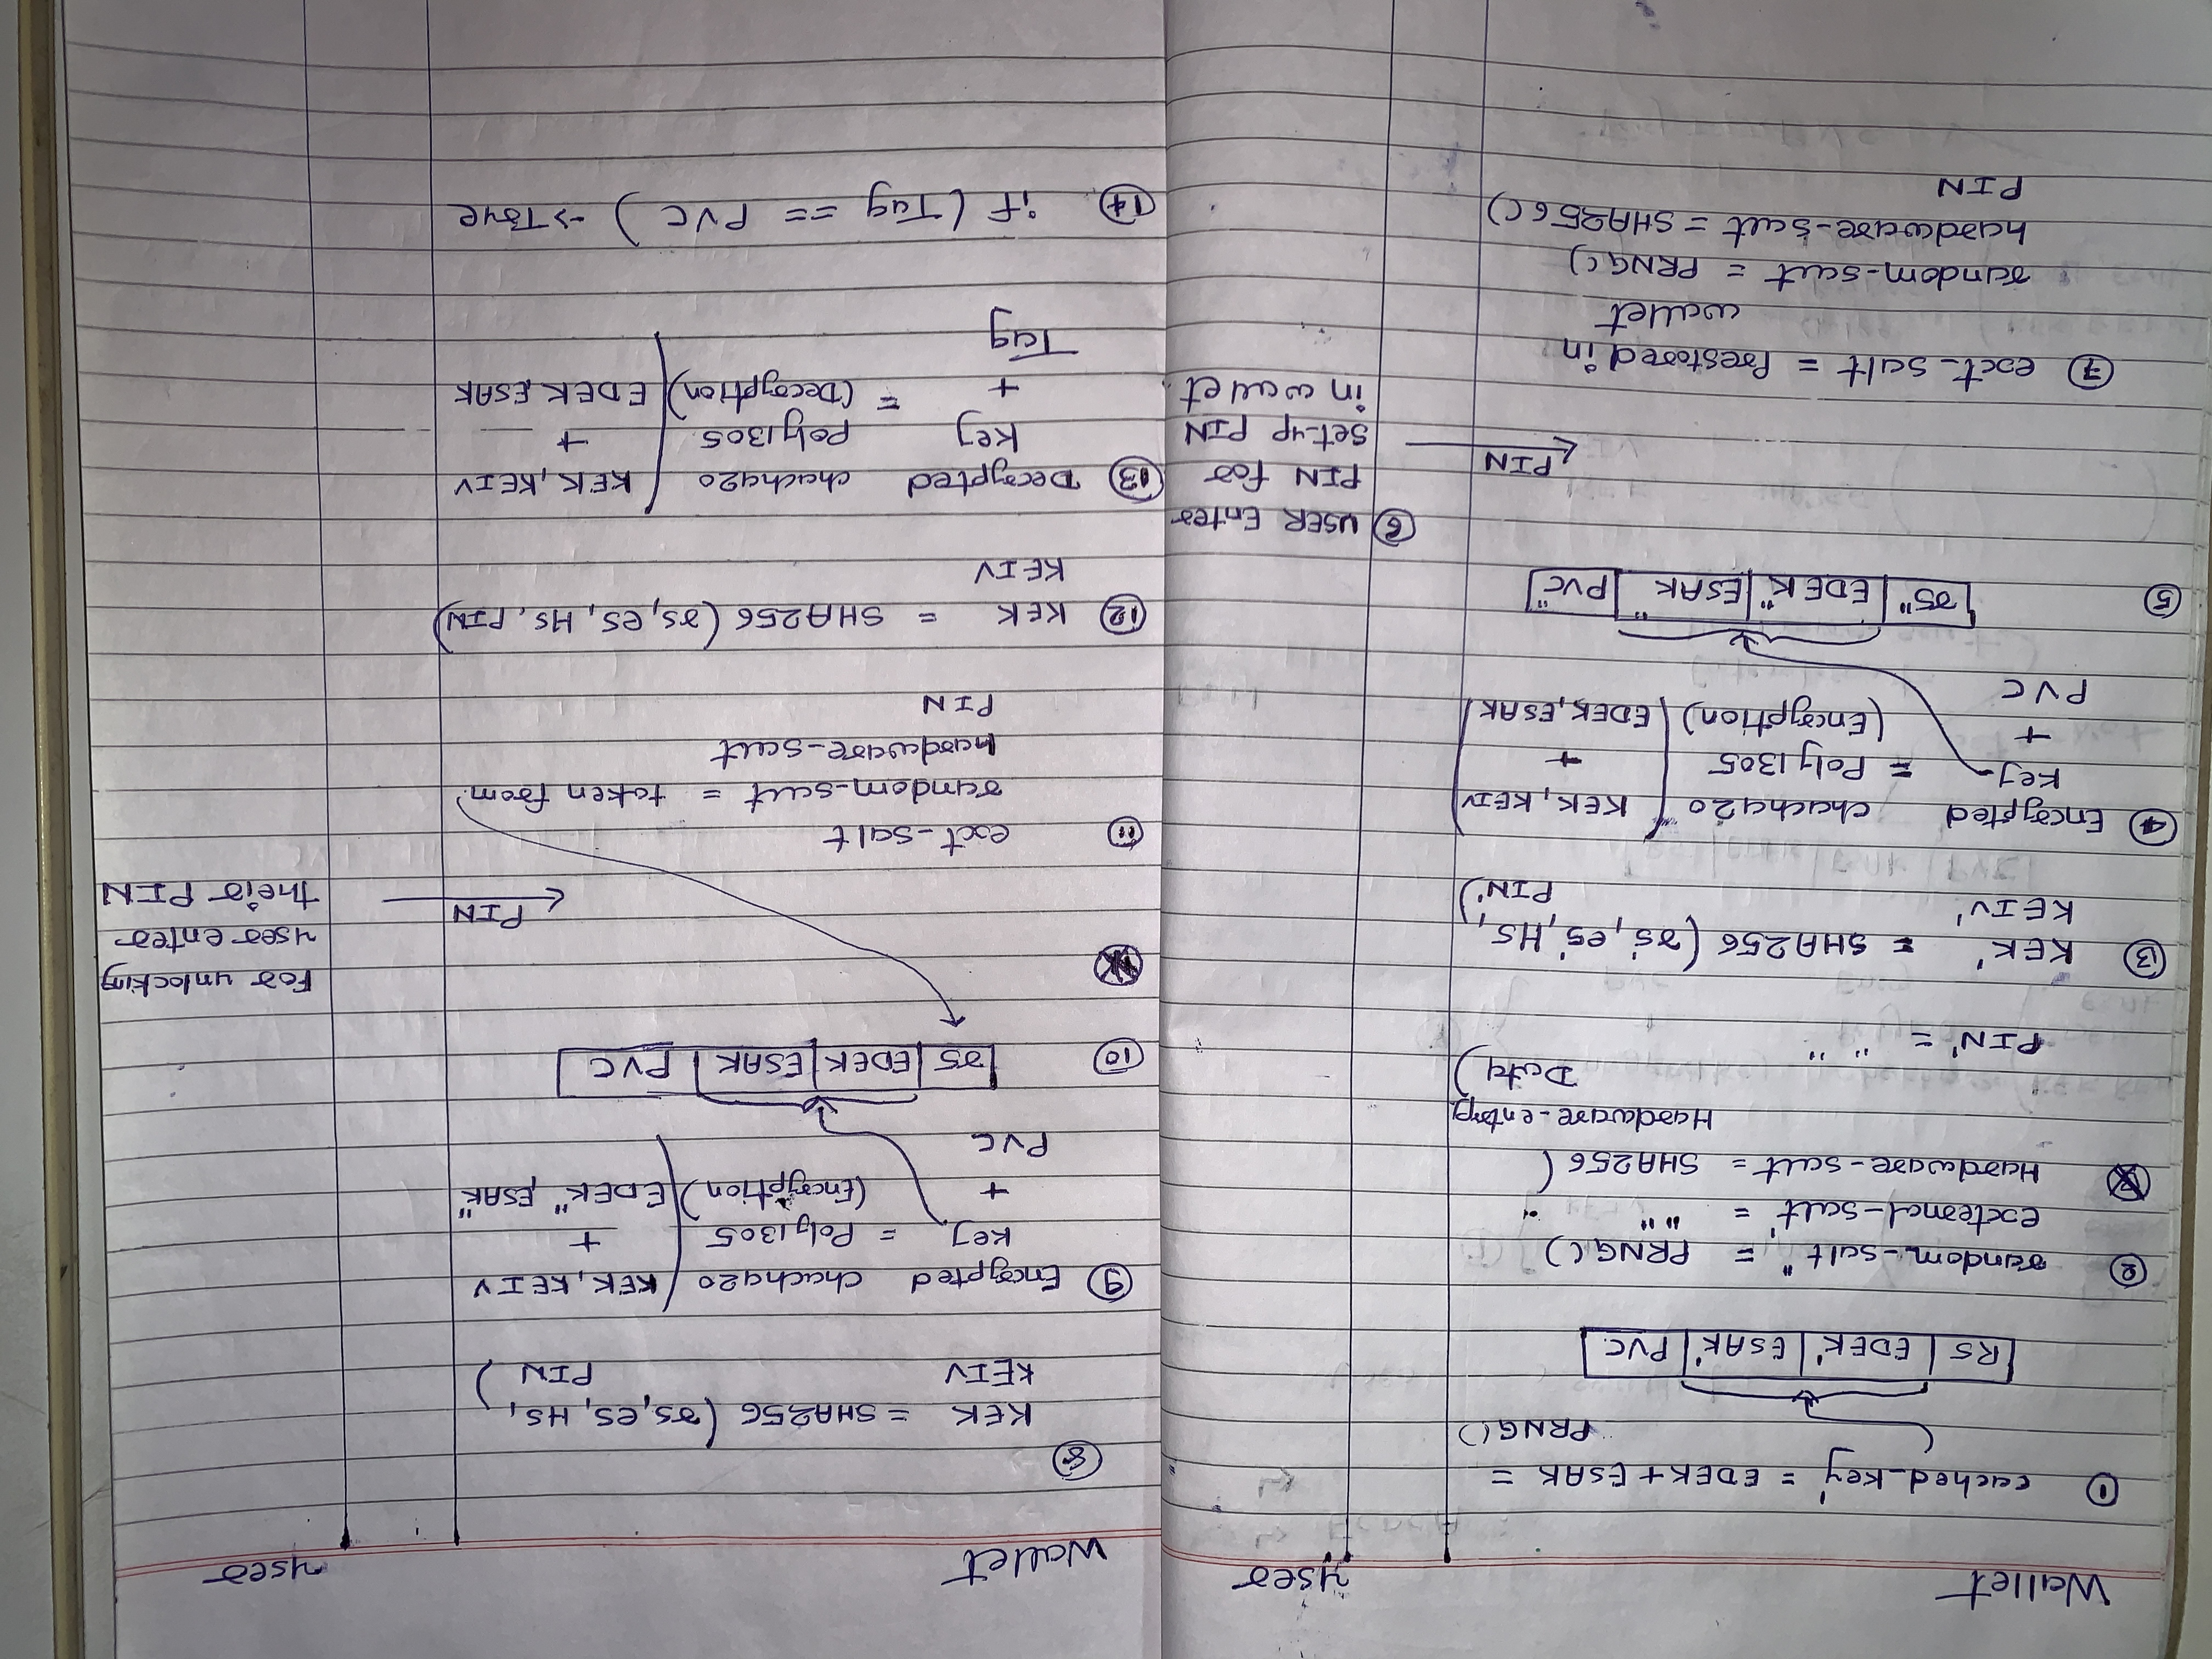 Wallet
user
① cached_key' = EDEK + ESAK =
PRNG()
RS | EDEK' | ESAK' | PVC
② random-salt" = PRNG()
external-salt' = " " "
Hardware-salt = SHA256 (
Hardware-entropy
Data)
PIN' = " "
③ KEK' = SHA256 (rs', es', HS,
KEIV' PIN')
④ Encrypted chacha20 ( KEK, KEIV
key = Poly1305 +
+ (Encryption) EDEK, ESAK )
PVC
⑤ rs" | EDEK" | ESAK" | PVC"
⑥ USER Enter
PIN for
PIN
set-up PIN
in wallet.
⑦ ext_salt = Prestored in
wallet
random-salt = PRNG()
hardware-salt = SHA256()
PIN
Wallet
user
⑧
KEK = SHA256 (rs, es, HS,
KEIV PIN)
⑨ Encrypted chacha20 ( KEK, KEIV
key = Poly1305 +
+ (Encryption) EDEK" ESAK"
PVC
⑩ rs | EDEK | ESAK | PVC
For unlocking
user enter
PIN
their PIN
⑪ ext-salt
random-salt = taken from
hardware-salt
PIN
⑫ KEK = SHA256 (rs, es, HS, PIN)
KEIV
⑬ Decrypted chacha20 ( KEK, KEIV
key poly1305 +
+ = (Decryption) EDEK ESAK
Tag
⑭ if (Tag == PVC) -> True